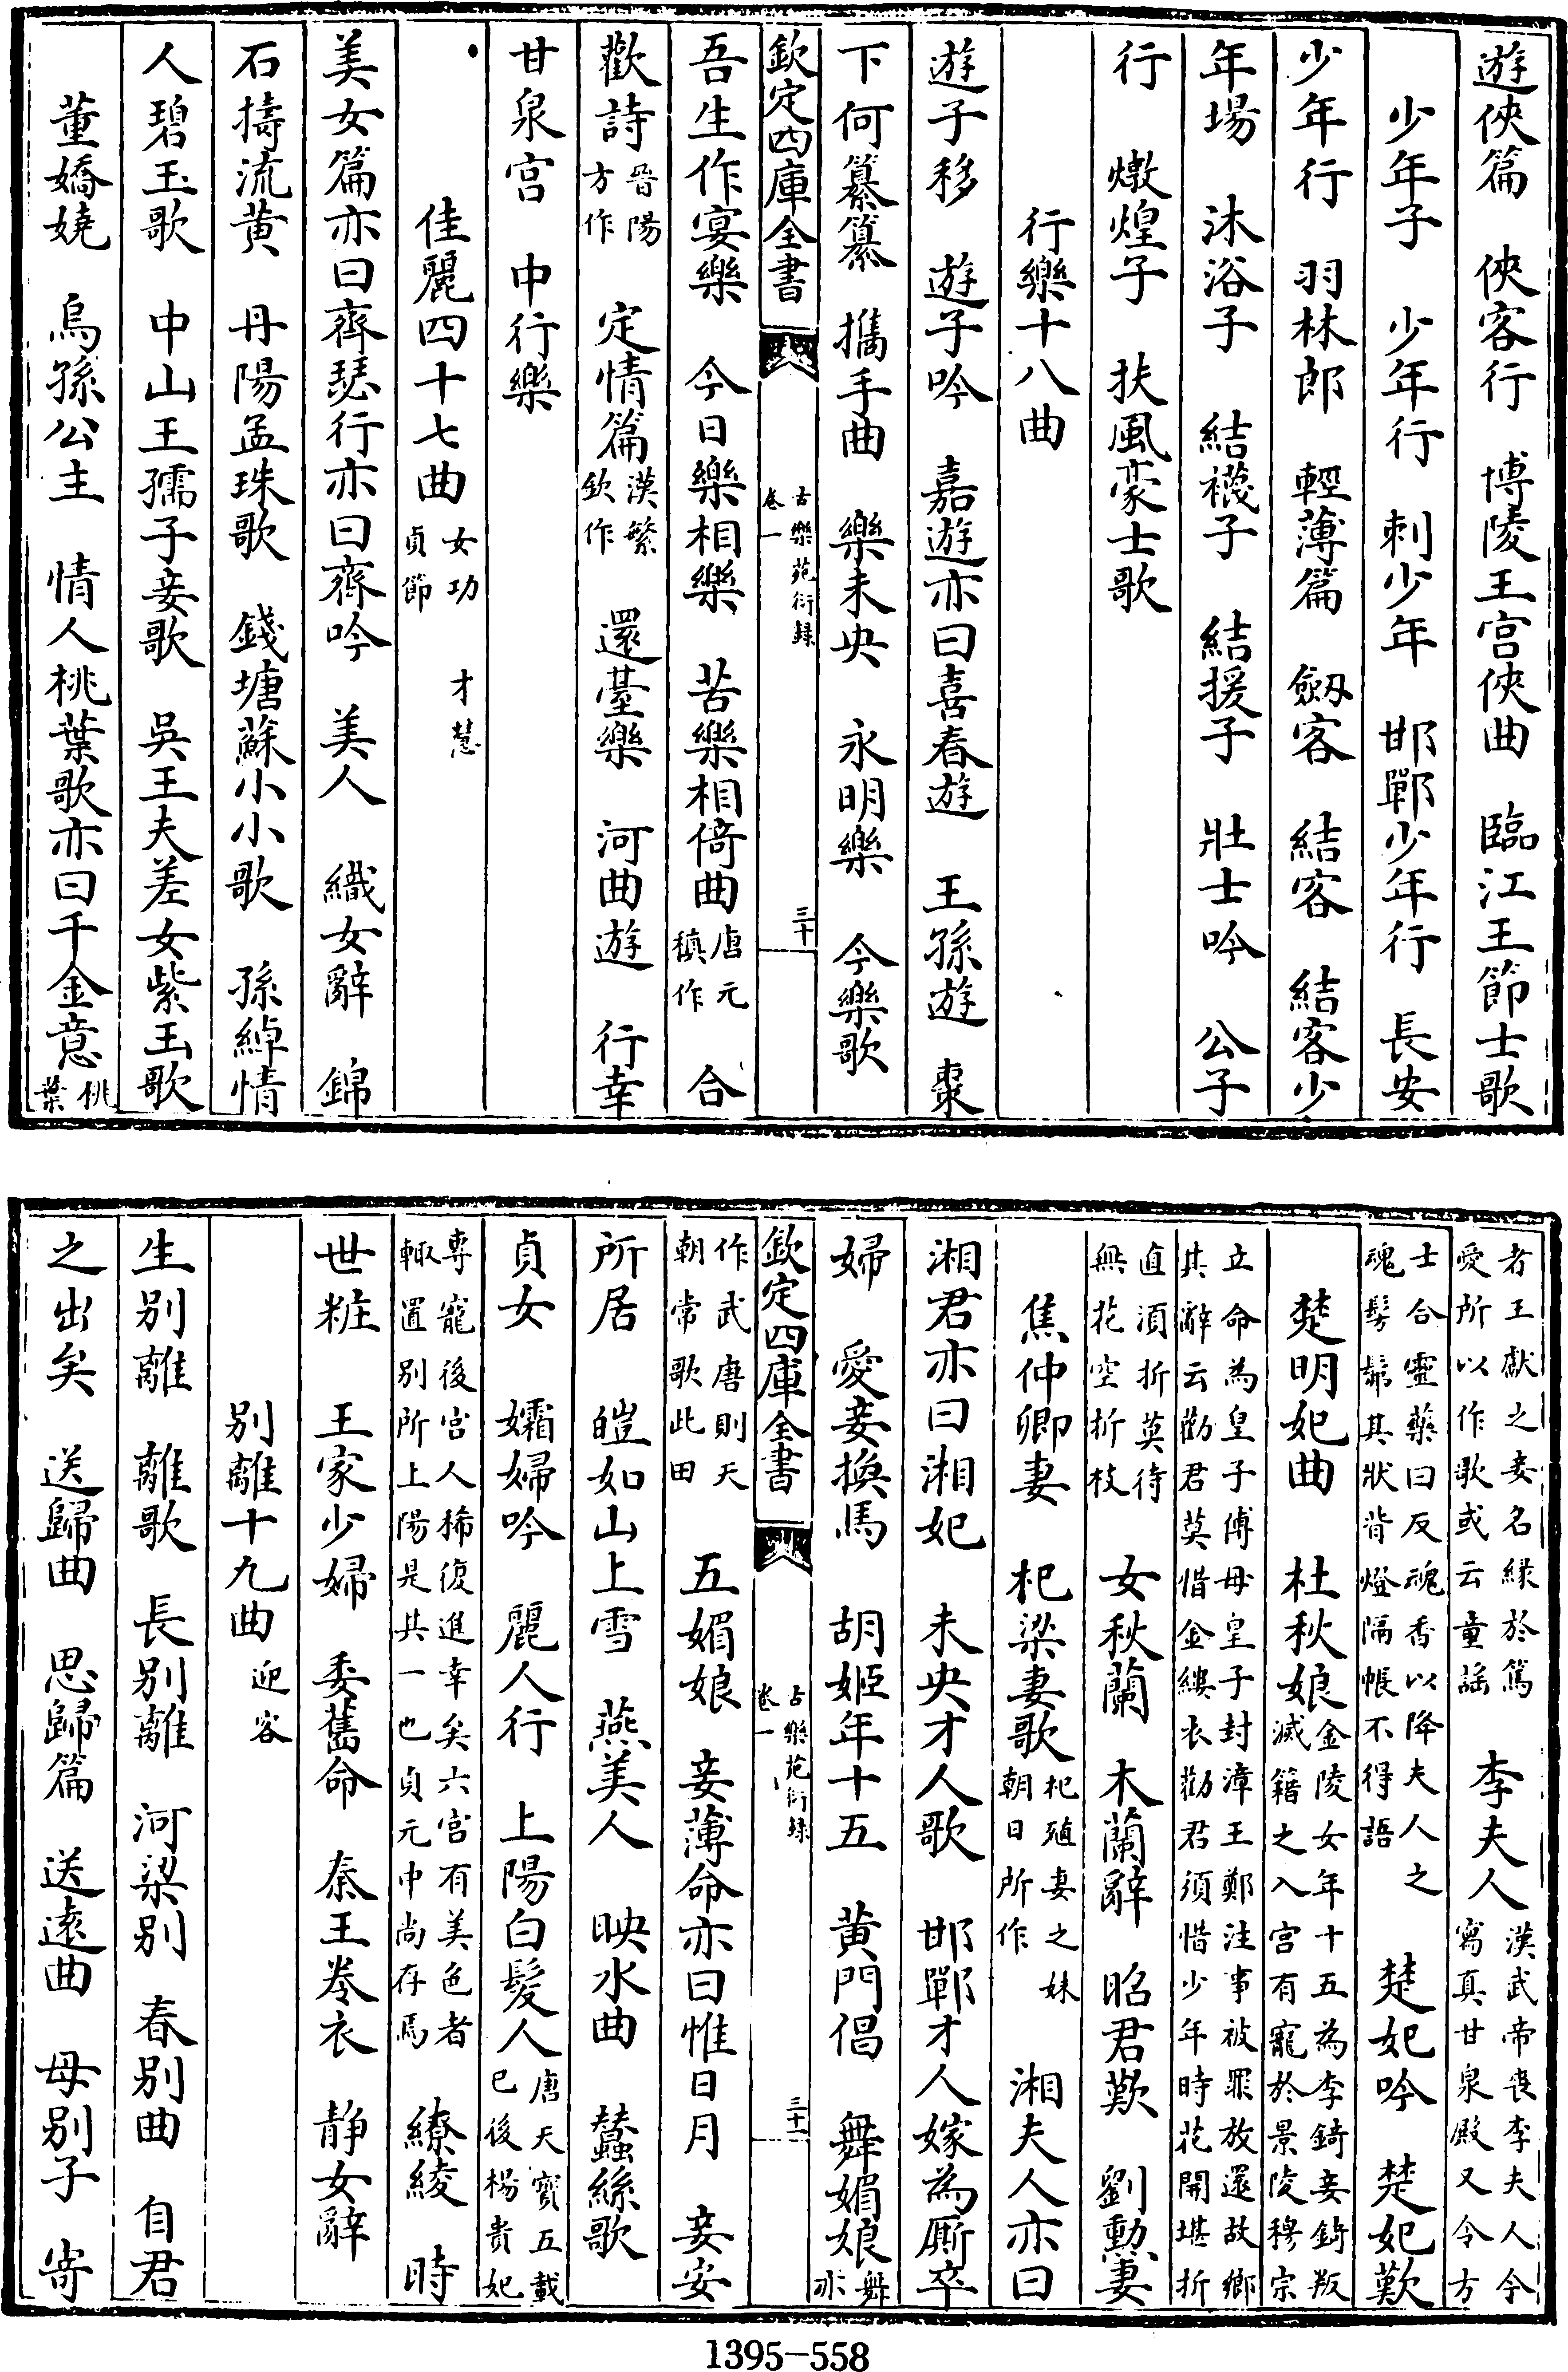 遊俠篇　俠客行　博陵王宫俠曲　臨江王節士歌
少年子　少年行　刺少年　邯鄲少年行　長安
少年行　羽林郎　輕薄篇　劒客　結客　結客少
年場　沐浴子　結襪子　結援子　壯士吟　公子
行　燉煌子　扶風豪士歌
行樂十八曲
遊子移　遊子吟　嘉遊亦曰喜春遊　王孫遊　棗
下何纂纂　攜手曲　樂未央　永明樂　今樂歌
欽定四庫全書　古樂苑衍録卷一　三十
吾生作宴樂　今日樂相樂　苦樂相倚曲唐元稹作　合
歡詩晉陽方作　定情篇漢繁欽作　還臺樂　河曲遊　行幸
甘泉宫　中行樂
佳麗四十七曲女功　才慧　貞節
美女篇亦曰齊瑟行亦曰齊吟　美人　織女辭　錦
石擣流黄　丹陽孟珠歌　錢塘蘇小小歌　孫綽情
人碧玉歌　中山王孺子妾歌　吳王夫差女紫玉歌
董嬌嬈　烏孫公主　情人桃葉歌亦曰千金意桃葉
者王獻之妾名緣於篤愛所以作歌或云童謡　李夫人漢武帝喪李夫人令寫真甘泉殿又令方
士合靈藥曰反魂香以降夫人之魂髣髴其狀背燈隔帳不得語　楚妃吟　楚妃歎
楚明妃曲　杜秋娘金陵女年十五為李錡妾錡叛滅籍之入宫有寵於景陵穆宗
立命為皇子傅母皇子封漳王鄭注事被罪放還故鄉其辭云勸君莫惜金縷衣勸君須惜少年時花開堪折
直須折莫待無花空折枝　女秋蘭　木蘭辭　昭君歎　劉勲妻
焦仲卿妻　杞梁妻歌杞殖妻之妹朝日所作　湘夫人亦曰
湘君亦曰湘妃　未央才人歌　邯鄲才人嫁為厮卒
婦　愛妾換馬　胡姬年十五　黄門倡　舞媚娘舞亦
欽定四庫全書　古樂苑衍録卷一　三十一
作武唐則天朝常歌此田　五媚娘　妾薄命亦曰惟日月　妾安
所居　皚如山上雪　燕美人　映水曲　蠶絲歌
貞女　孀婦吟　麗人行　上陽白髮人唐天寶五載已後楊貴妃
專寵後宫人稀復進幸矣六宫有美色者輒置别所上陽是其一也貞元中尚存焉　繚綾　時
世粧　王家少婦　委舊命　秦王卷衣　静女辭
别離十九曲迎客
生别離　離歌　長别離　河梁别　春别曲　自君
之出矣　送歸曲　思歸篇　送遠曲　母别子　寄
1395-558